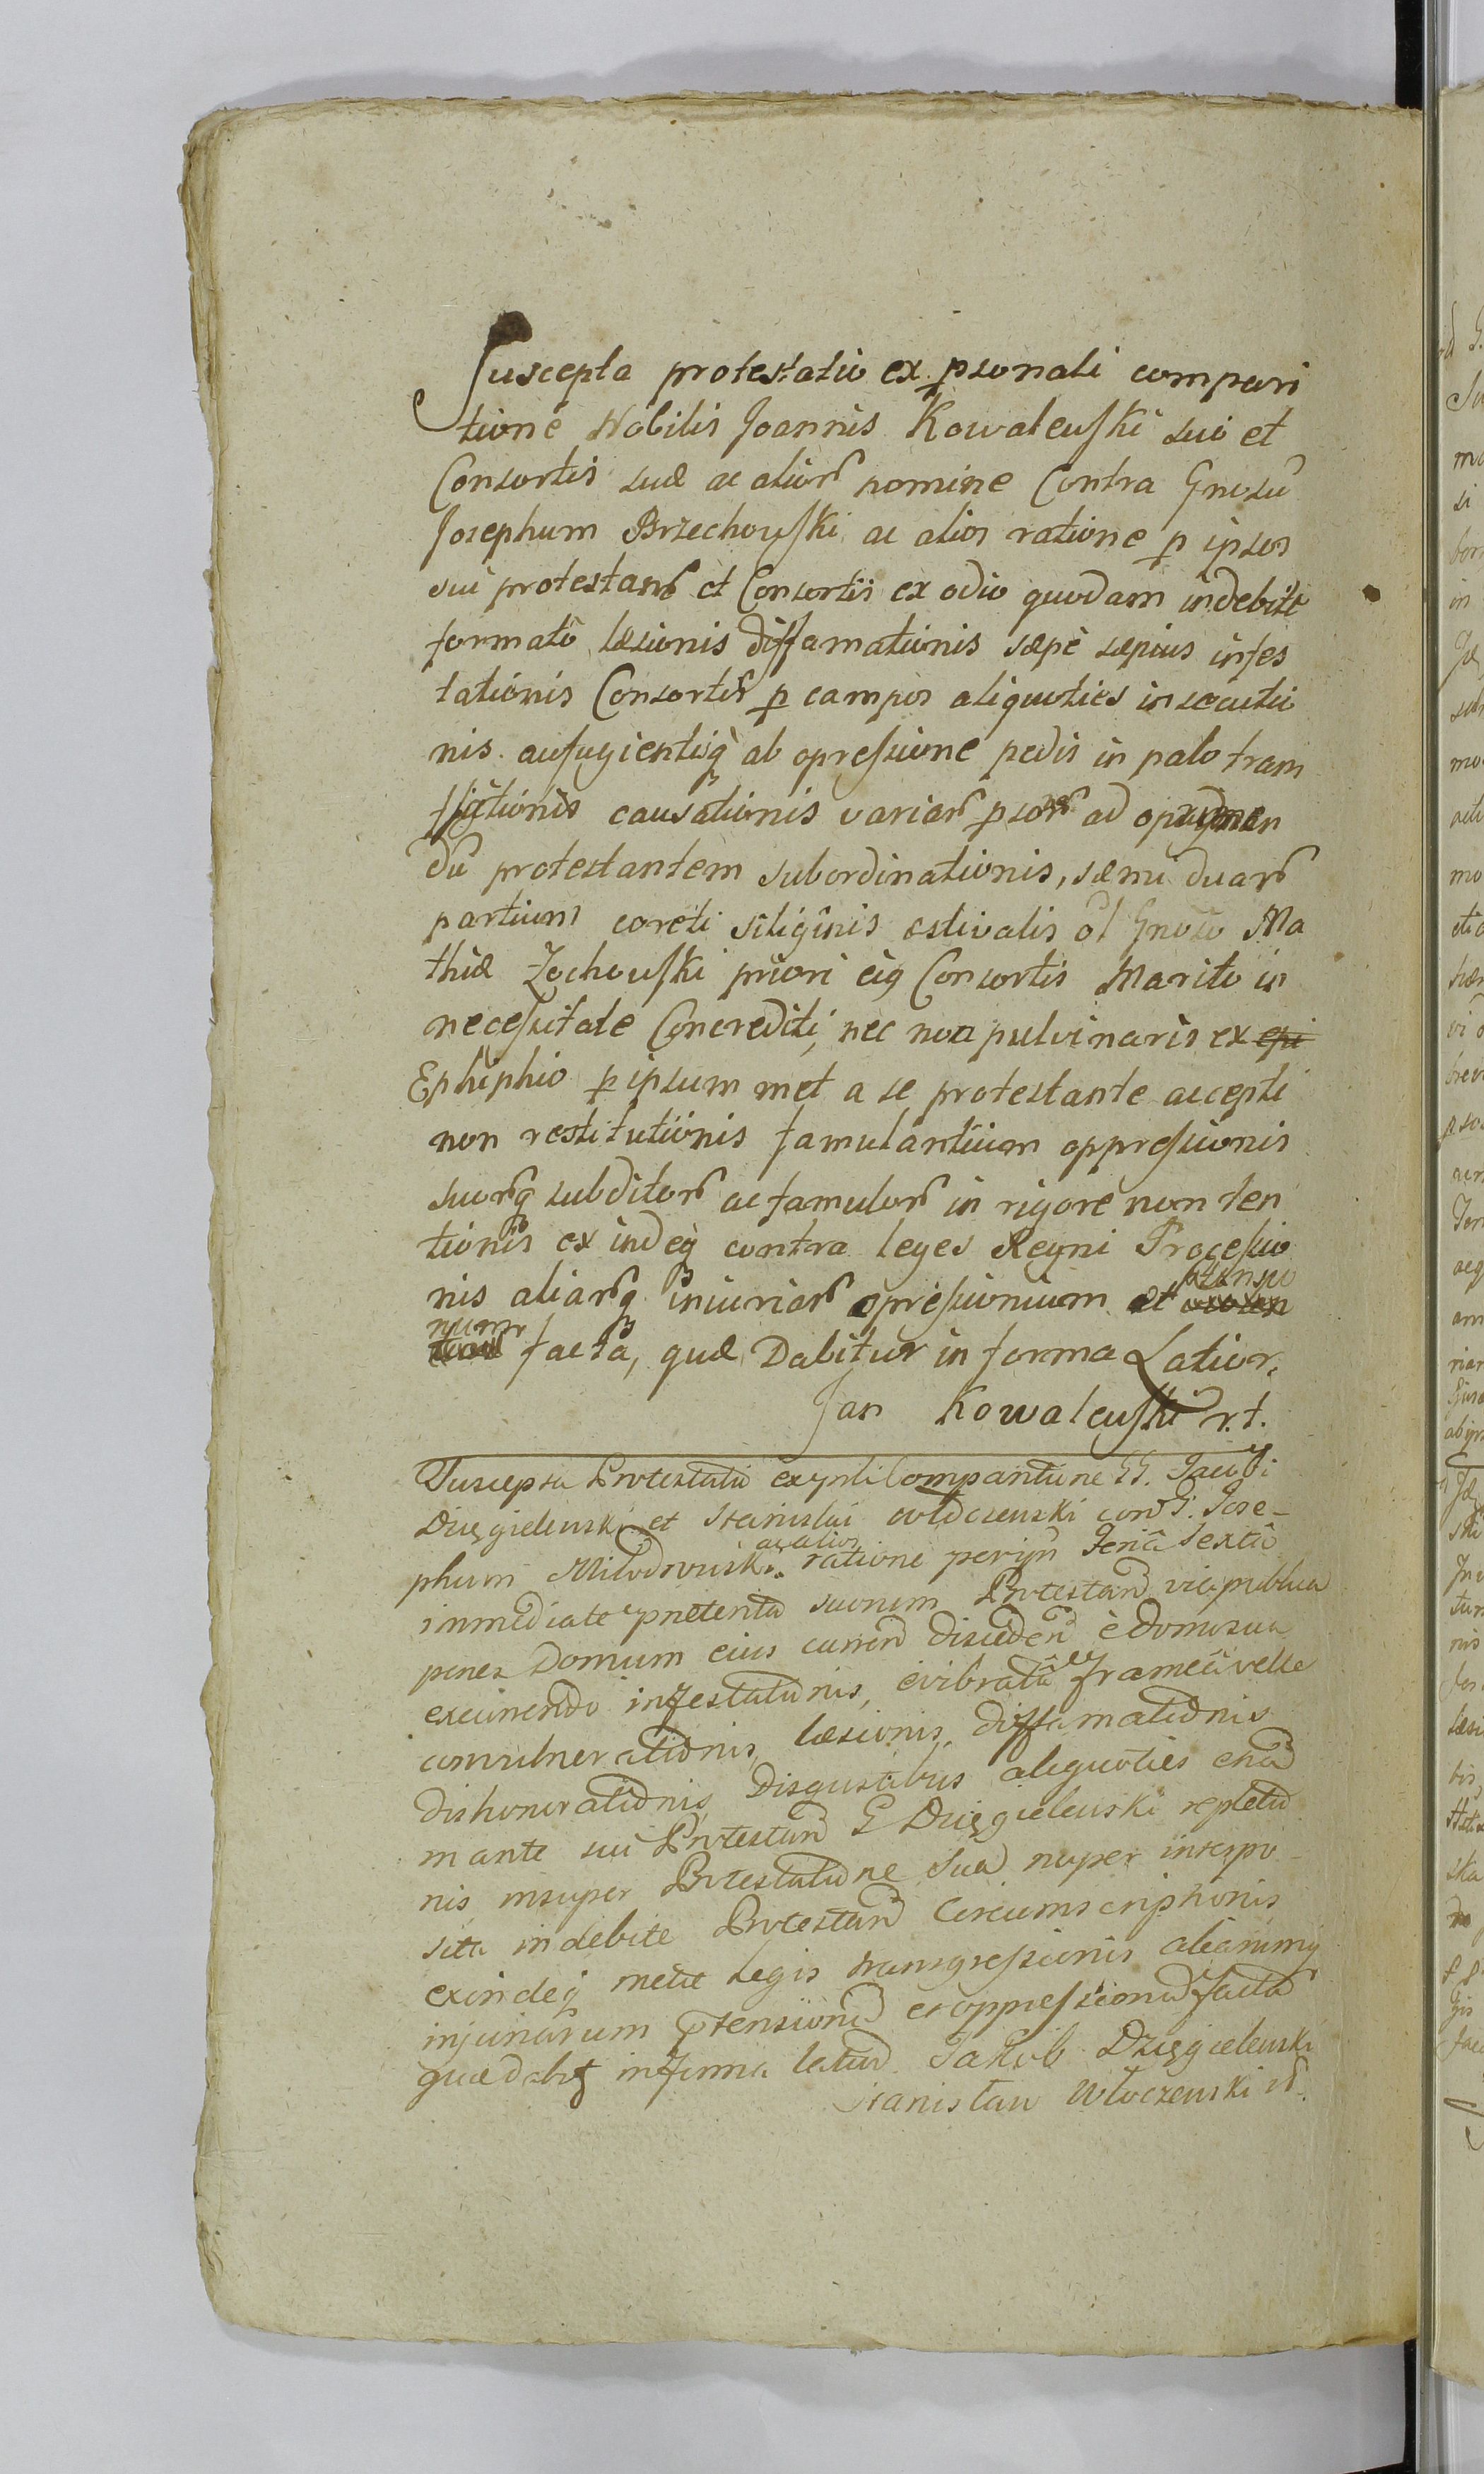 Suscepta protestatio ex psonali compari
tione Nobilis Joannis Kowalewski suo et
Consortis suæ ac alior nomine Contra Gnosū
Josephum Brzechowski ac alios ratione p ipsos
sui protestan et Consortis ex odio quodam indebite
formato læsionis diffamationis sæpe sæpius infes
tationis Consortis p campos aliquoties insecutio
nis aufugientisq ab opressione pedis in palo tram
fictionis causationis variar psonar ad
dū protestantem subordinationis, duar
partium coreti siliginis æstivalis ol Gnoso Ma
thiæ Zochowski priori eiq Consortis Marito in
necessitate Concrediti, nec non pulvinaris ex epi
Ephiphio p ipsum met a se protestante accepti
non restitutionis famulantium oppressionis
suorq subditor ac famulor in rigore non ten
tionis ex indeq contra leges Regni Processio
nis aliarq iniuriar opressionium et
facta, quæ Dabitur in forma Latior.
Jan Kowalewski r.t.
Suscepta Protestatio ex Comparitione GG. Jacobi
Dzięgielewski et Stanislai con G. Jose-
phum ac alios ratione Feria Sexta
inmediate præterita suorum Protestan via publica
penes Domum eius curren è Domo sua
excurrendo infestationis, evibrata framea velle
convulnerationis, læsionis, diffamationis
dishonorationis Disgustibus aliquoties
mante sui Protestan G Dzięgielewski repletio
nis insuper Protestatione sua nuper interpo-
sita indebite Protestan Circumscriptionis
exindeq metæ Legis transgressionis aliarumq
injuriarum ptensionū et oppressionū facta
quæ dabit in forma latiō. Jakub Dzięgielewski
Stanisław Włoczewski